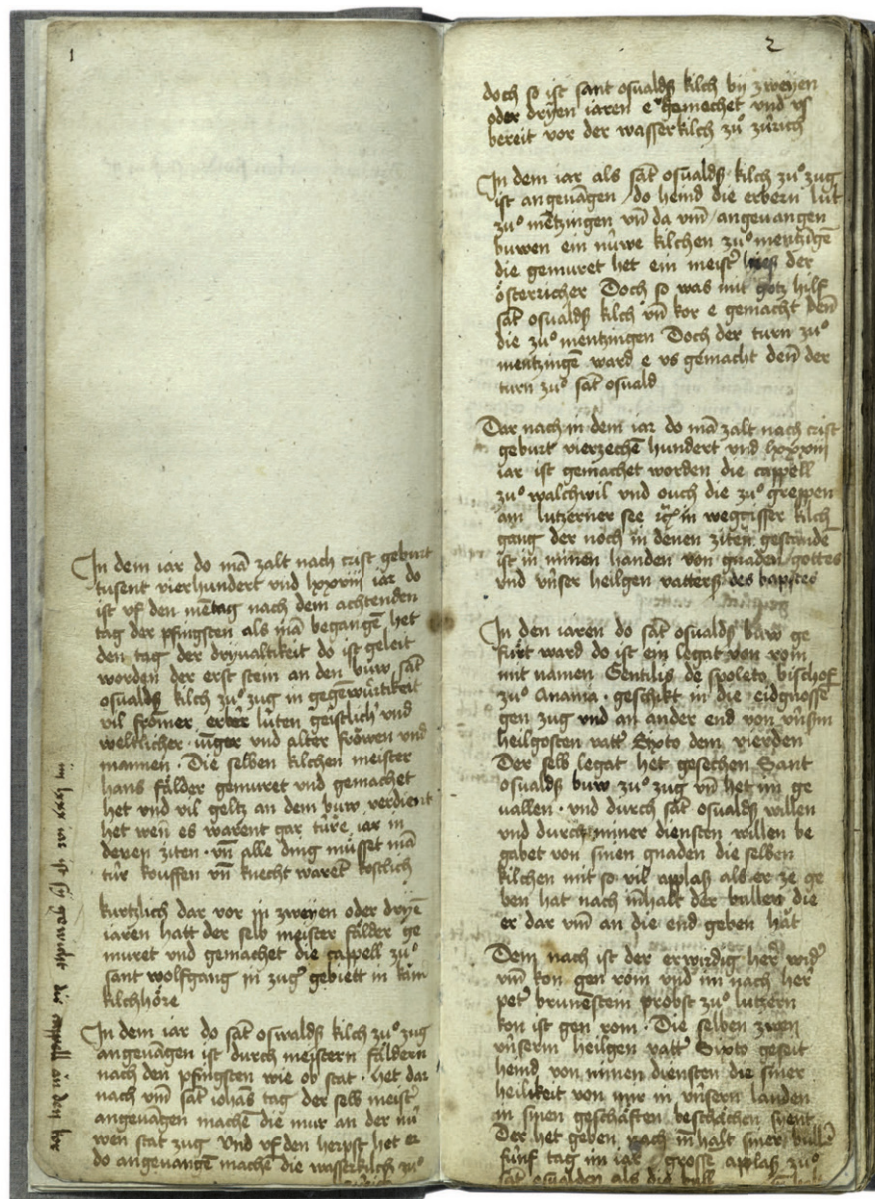 1
In dem iar do mā zalt nach crist geburt
tusent vierhundert und lxxviii iar do
ist uf den mētag nach dem achtenden
tag der pfingsten als mā begangē het
den tag der dryualtikeit do ist geleit
worden der erst stein an den buw sāt
osualdß kilch zuͦ zug in gegēwürtikeit
vil fromer erber lüten geistlich und
weltlicher iūger und alter fröwen und
mannen · Die selben kilchen meister
hans fälder gemuret und gemachet
het und vil geltz an dem buw verdient
het wen es warent gar türe iar in
denen ziten · un̄ alle ding müsset mā
tür kouffen un̄ knecht warēt kostlich
kurtzlich dar vor in zweyen oder dryē
iaren hatt der selb meister fälder ge
muret und gemachet die cappell zuͦ
sant wolfgang in zug gebiett in kām
kilchhöre
In dem iar do sāt oswaldß kilch zuͦ zug
angeuāgen ist durch meistern fäldern
nach den pfingsten wie ob stat · het dar
nach um̄ sāt iohās tag der selb meist
angeuāgen machē die mur an der nü
wen stat zug Und uf den herpst het er
do angeuangē machē die wasserkilch zuͦ
im lxxx iar ist sy gewicht die cappell in den
2
doch so ist sant osualdß kilch by zweyen
oder dryen iaren e gemechet und us
bereit vor der wasserkilch zuͦ zürich
In dem iar als sāt osualdß kilch zuͦ zug
ist angeuāgen / do heind die erbern lüt
zuͦ mētzingen un̄ da um̄ / angeuangen
buwen ein nüwe kilchen zuͦ mentzigē
die gemuret het ein meist hieß der
österricher Doch so was mit gotz hilf
sāt osualdß kilch un̄ kor e gemacht den̄
die zuͦ mentzingen Doch der turn zuͦ
mentzingē ward e us gemacht den̄ der
turn zuͦ sāt osuald
Dar nach in dem iar do mā zalt nach crist
geburt vierzechē hundert und lxxxiii
iar ist gemachet worden die cappell
zuͦ walchwil und ouch die zuͦ greppen
am lutzerner see in weggisser kilch
gang der noch in denen ziten gestande
ist in minen handen von gnaden gottes
und unser heilgen vatterß des bapstes
In den iaren do sāt osualdß buw ge
fürt ward do ist ein legat von rom
mit namen Gentilis de spoleto bischof
zuͦ Anania · geschikt in die eidgnosse
gen zug und an ander end von unsm
heilgosten vatt Sixto dem vierden
Der selb legat het gesechen Sant
osualdß buw zuͦ zug un̄ het im ge
uallen · und durch sāt osualdß willen
und durch miner diensten willen be
gabet von sinen gnaden die selben
kilchen mit so vil applaß als er ze ge
ben hat nach inhalt der bullen die
er dar um̄ an die end geben hat
Dem nach ist der erwirdig her wid
um̄ kon gen rom und im nach her
pet brunēstein probst zuͦ lutzern
kon ist gen rom · Die selben zwen
unserm heilgen vatt Sixto geseit
heind von minen diensten die siner
heilikeit von mir in unsern landen
in sinen geschäften beschächen syent
Der het geben nach inhalt siner bullē
fünf tag im iar grosse applaß zuͦ
sāt osualden als die bull